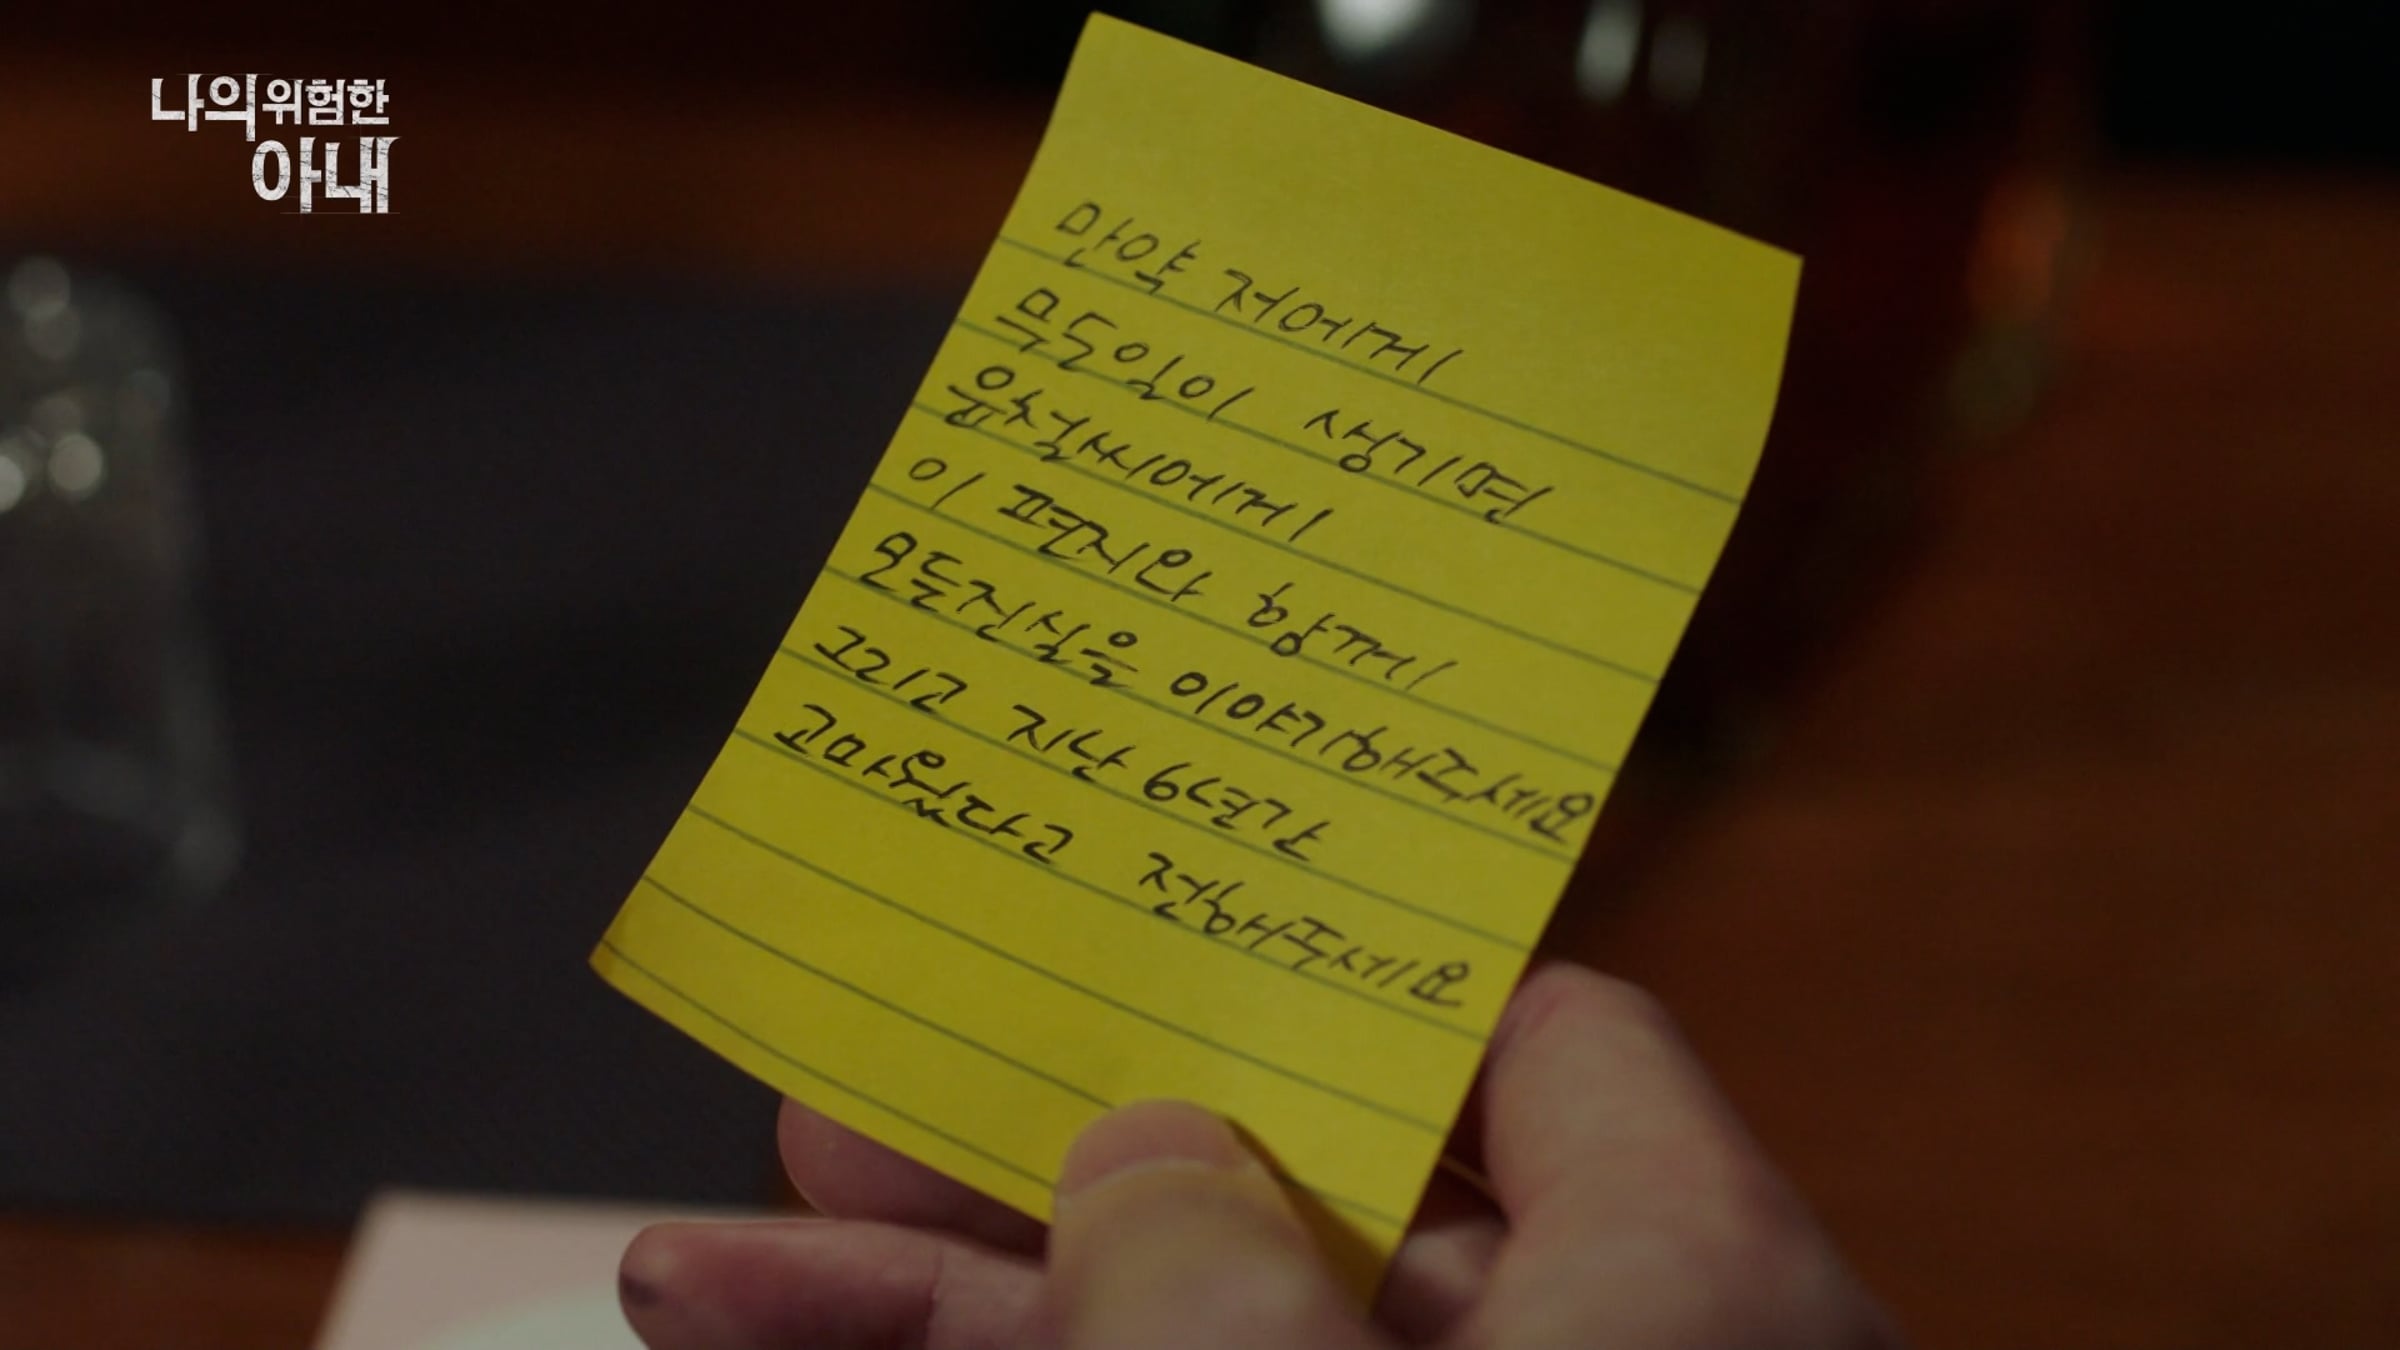 나의 위험한
아내
만약 저에게
무슨일이 생기면
윤철씨에게
이 편지와 함께
모든진실을 이야기해주세요
그리고 지난 6년간
고마웠다고 전해주세요